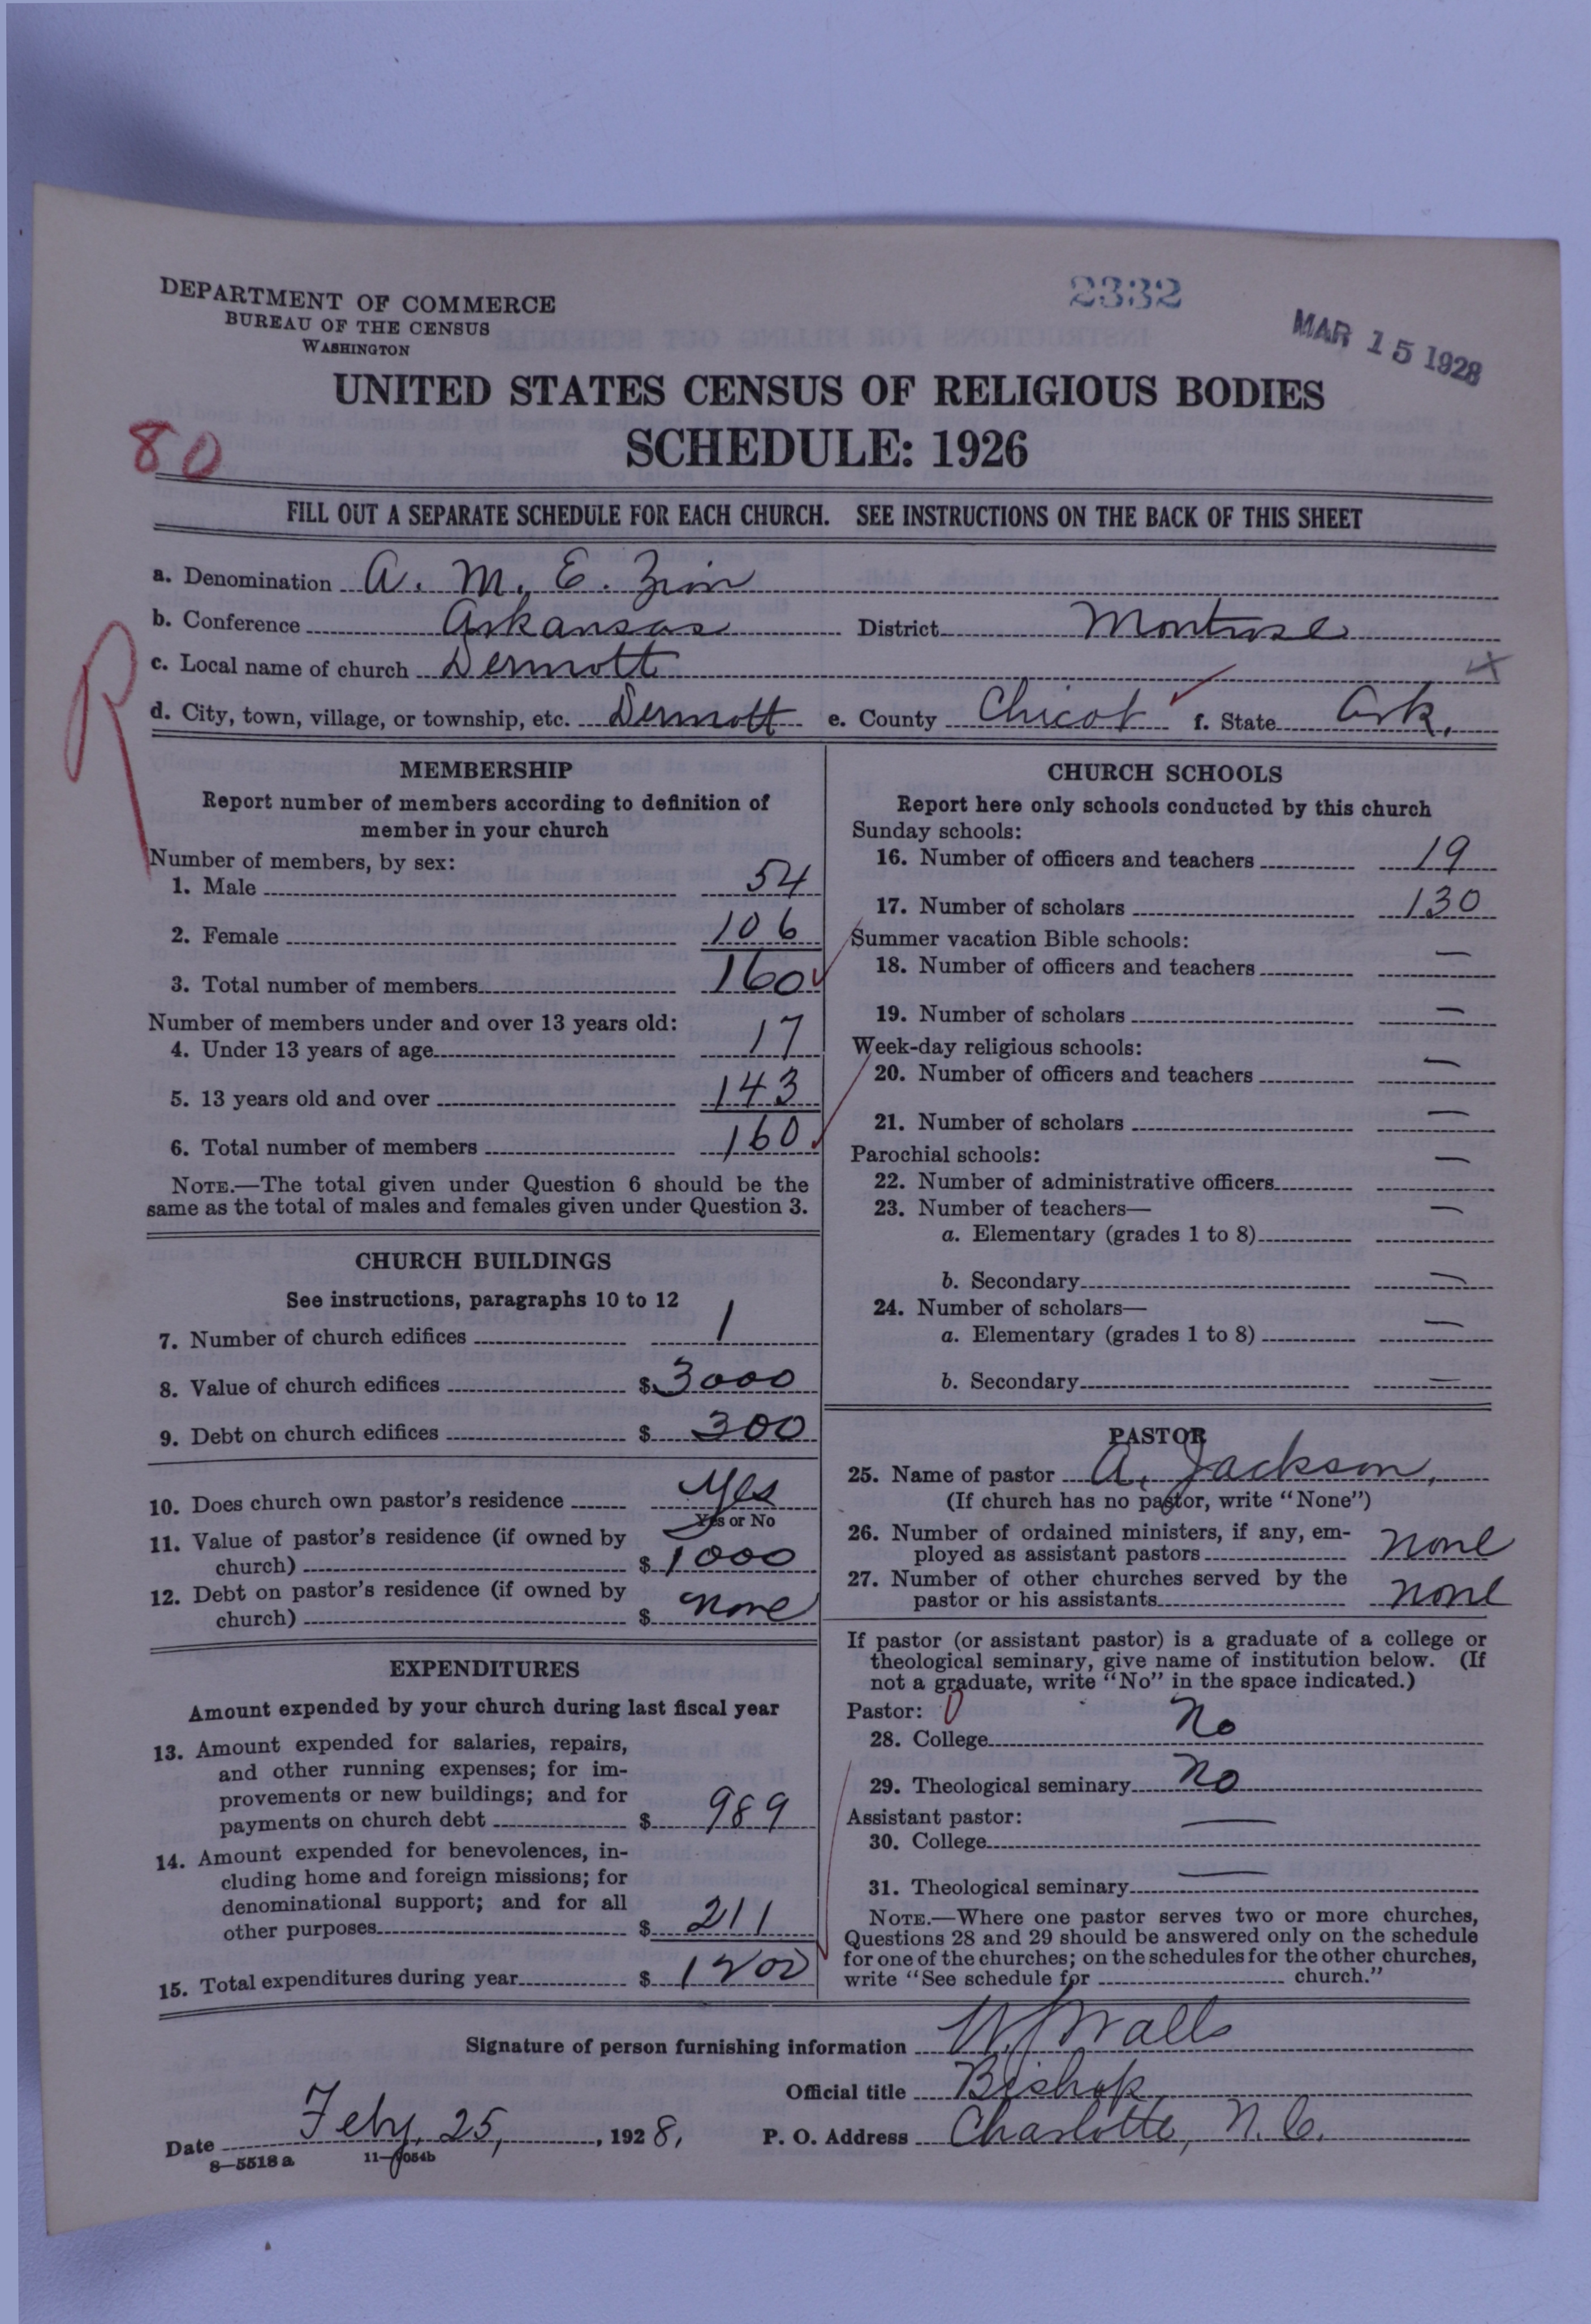 DEPARTMENT OF COMMERCE
BUREAU OF THE CENSUS
WASHINGTON
2332
MAR 15 1928
UNITED STATES CENSUS OF RELIGIOUS BODIES
SCHEDULE: 1926
80
FILL OUT A SEPARATE SCHEDULE FOR EACH CHURCH. SEE INSTRUCTIONS ON THE BACK OF THIS SHEET
a. Denomination A. M. E. Zion
b. Conference Arkansas District Montrose
c. Local name of church Dermott
d. City, town, village, or township, etc. Dermott e. County Chicot f. State Ark.
R
MEMBERSHIP
Report number of members according to definition of
member in your church
Number of members, by sex:
1. Male 54
2. Female 106
3. Total number of members 160
Number of members under and over 13 years old:
4. Under 13 years of age 17
5. 13 years old and over 143
6. Total number of members 160
NOTE.—The total given under Question 6 should be the
same as the total of males and females given under Question 3.
CHURCH BUILDINGS
See instructions, paragraphs 10 to 12
7. Number of church edifices 1
8. Value of church edifices $ 3000
9. Debt on church edifices $ 300
10. Does church own pastor's residence Yes
Yes or No
11. Value of pastor's residence (if owned by
church) $ 1000
12. Debt on pastor's residence (if owned by
church) $ none
EXPENDITURES
Amount expended by your church during last fiscal year
13. Amount expended for salaries, repairs,
and other running expenses; for im-
provements or new buildings; and for
payments on church debt $ 989
14. Amount expended for benevolences, in-
cluding home and foreign missions; for
denominational support; and for all
other purposes $ 211
15. Total expenditures during year $ 1200
CHURCH SCHOOLS
Report here only schools conducted by this church
Sunday schools:
16. Number of officers and teachers 19
17. Number of scholars 130
Summer vacation Bible schools:
18. Number of officers and teachers —
19. Number of scholars —
Week-day religious schools:
20. Number of officers and teachers —
21. Number of scholars —
Parochial schools:
22. Number of administrative officers —
23. Number of teachers—
a. Elementary (grades 1 to 8) —
b. Secondary —
24. Number of scholars—
a. Elementary (grades 1 to 8) —
b. Secondary —
PASTOR
25. Name of pastor A. Jackson,
(If church has no pastor, write "None")
26. Number of ordained ministers, if any, em-
ployed as assistant pastors none
27. Number of other churches served by the
pastor or his assistants none
If pastor (or assistant pastor) is a graduate of a college or
theological seminary, give name of institution below. (If
not a graduate, write "No" in the space indicated.)
Pastor: 0
28. College No
29. Theological seminary No
Assistant pastor:
30. College —
31. Theological seminary —
NOTE.—Where one pastor serves two or more churches,
Questions 28 and 29 should be answered only on the schedule
for one of the churches; on the schedules for the other churches,
write "See schedule for church."
Signature of person furnishing information W J Walls
Official title Bishop
Date Feby. 25, 1928, P. O. Address Charlotte, N. C.
8—5518a 11—9054b